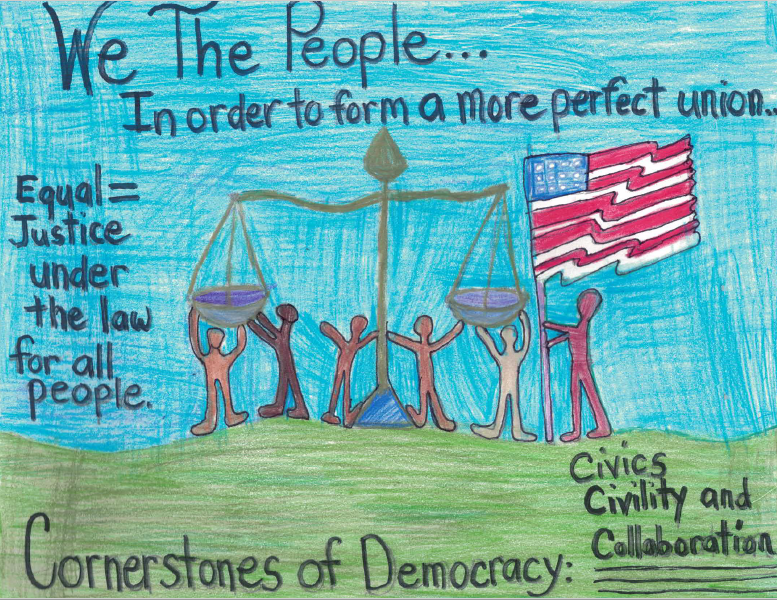 We The People...
In order to form a more perfect union...
Equal=
Justice
under
the law
for all
people.
Civics
Civility and
Collaboration
Cornerstones of Democracy: